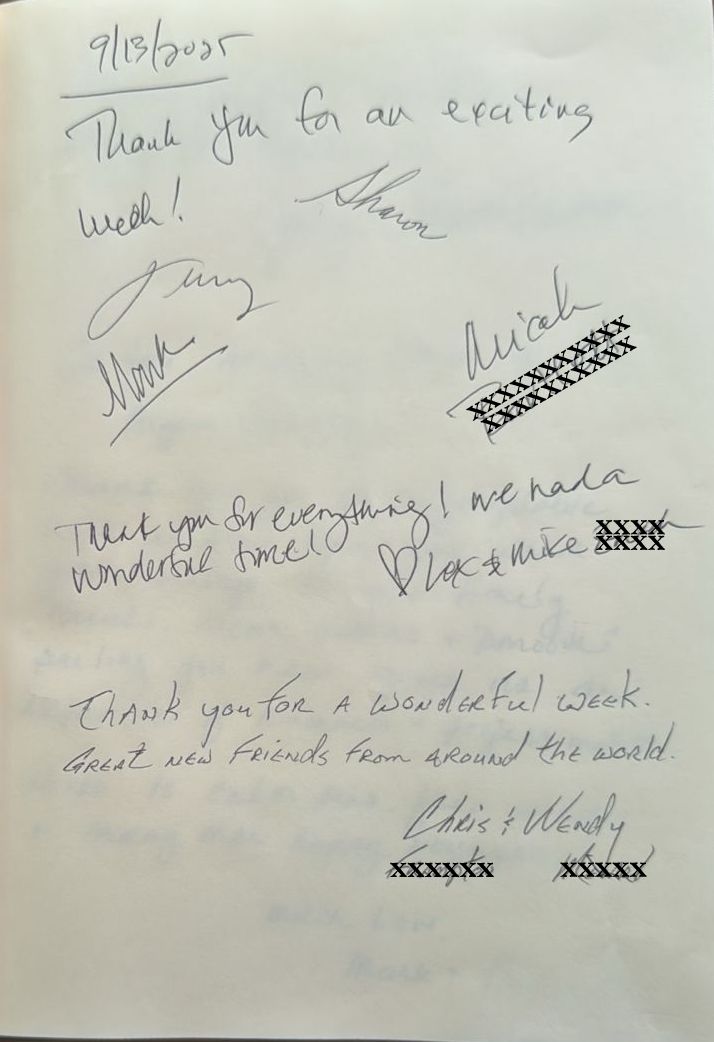 9/13/2025
Thank you for an exciting
week!
Sharon
Mark
Micah
Thank you for everything! we had a
wonderful time!
♡ Lex & Mike
Thank you for a wonderful week.
Great new friends from around the world.
Chris & Wendy